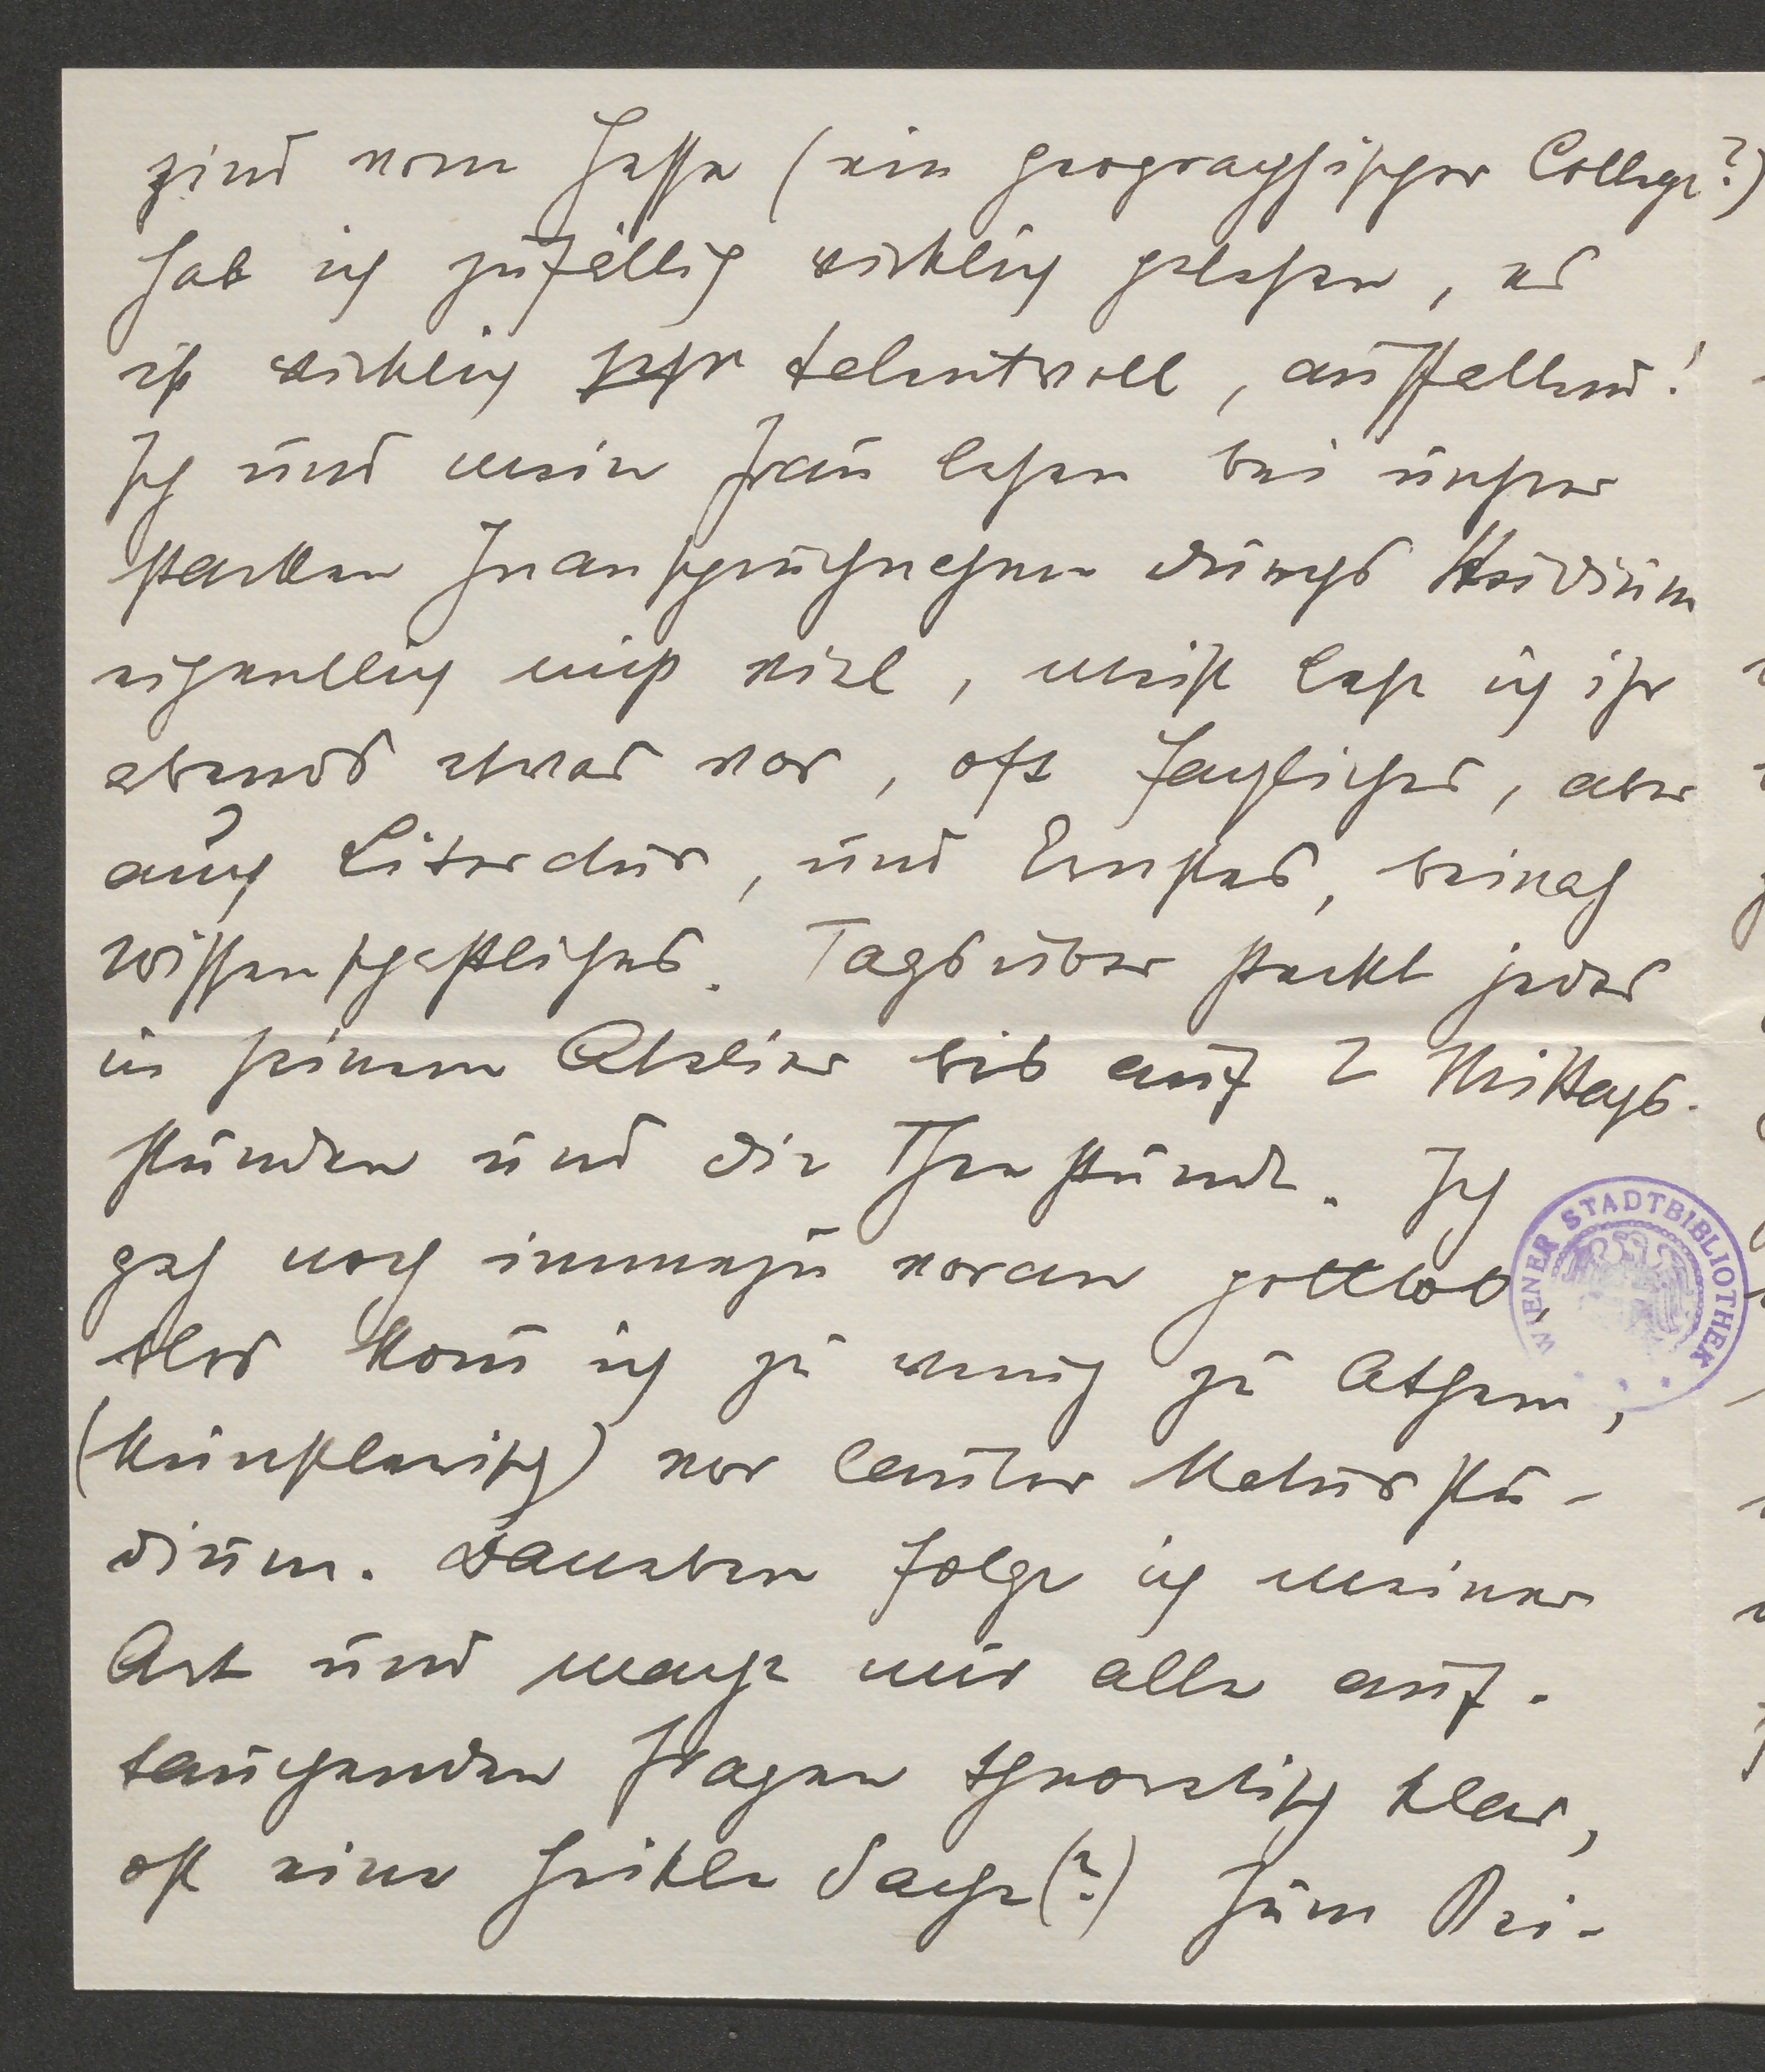 zind vom Hesse (ein geographischer College?)
hab ich zufällig wirklich gelesen, es
ist wirklich sehr talentvoll, auffallend!
Ich und meine Frau lesen bei unsrer
starken Inanspruchnahme durchs Studium
eigentlich nicht viel, meist lese ich ihr
abends etwas vor, oft fachliches, aber
auch Literatur, und Ernstes, beinah
wissenschaftliches. Tagsüber steckt jedes
in seinem Atelier bis auf 2 Mittags-
stunden und die Theestunde. Ich
geh noch immerzu voran gottlob,
blos kom̅ ich zu wenig zu Athem,
(künstlerisch) vor lauter Naturstu-
dium. Daneben folge ich meiner
Art und mache mir alle auf-
tauchenden Fragen theoretisch klar,
oft eine heikle Sache(?) Zum Bei-
WIENER STADTBIBLIOTHEK